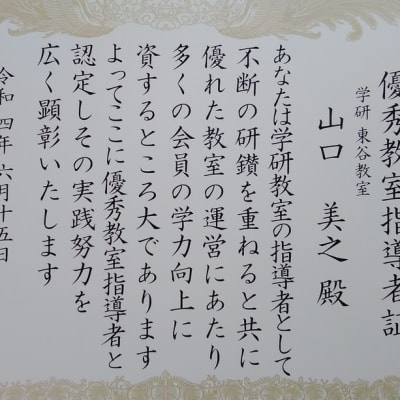 優秀教室指導者証
学研 東谷教室
山口 美之 殿
あなたは学研教室の指導者として
不断の研鑽を重ねると共に
優れた教室の運営にあたり
多くの会員の学力向上に
資するところ大であります
よってここに優秀教室指導者と
認定しその実践努力を
広く顕彰いたします
令和四年六月十五日